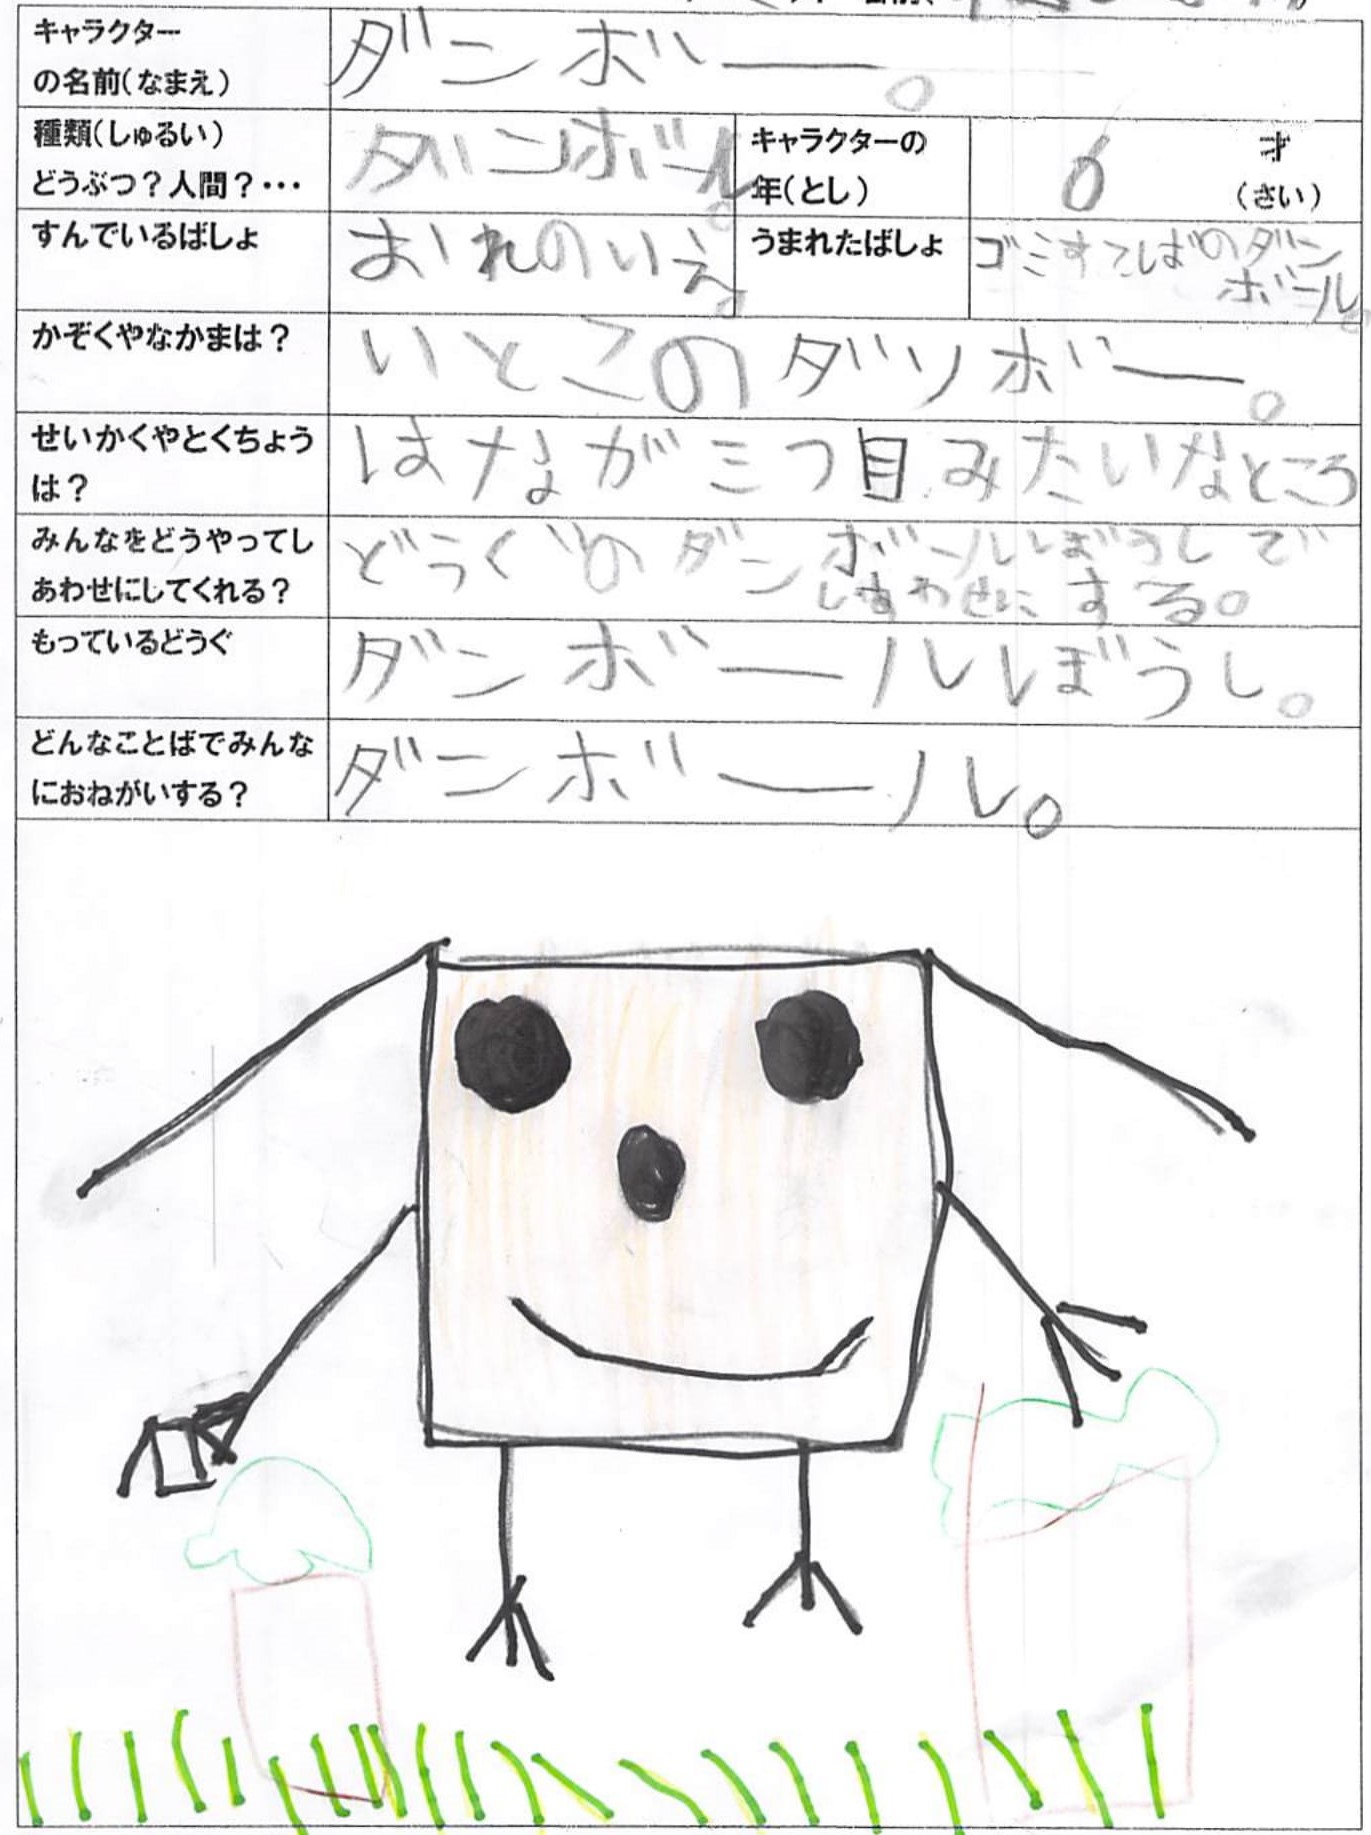 キャラクター
の名前(なまえ)
ダンボー。
種類(しゅるい)
どうぶつ？人間？・・・
ダンボール。
キャラクターの
年(とし)
6
才
(さい)
すんでいるばしょ
おれのいえ。
うまれたばしょ
ゴミすてばのダン
ボール。
かぞくやなかまは？
いとこのダソボー。
せいかくやとくちょう
は？
はなが三つ目みたいなところ
みんなをどうやってし
あわせにしてくれる？
どうぐのダンボールぼうしで
しあわせにする。
もっているどうぐ
ダンボールぼうし。
どんなことばでみんな
におねがいする？
ダンボール。